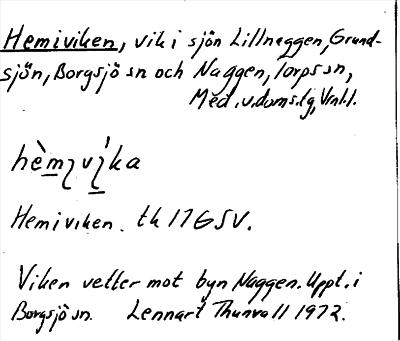 Hemiviken, vik i sjön Lillnaggen, Grund-
sjön, Borgsjö sn och Naggen, Torps sn,
Med. v. doms.lg, Vnl.l.
hèmıvı̀ka
Hemiviken. tk 17GSV.
Viken vetter mot byn Naggen. Uppt. i
Borgsjö sn. Lennart Thunvall 1972.